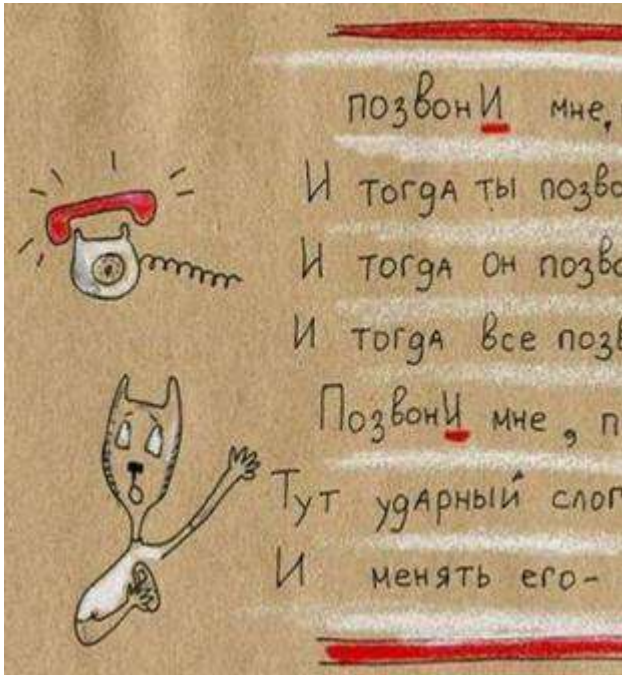 позвонИ мне,
И тогда ты позво
И тогда он позво
И тогда все позв
ПозвонИ мне, п
Тут ударный слог
И менять его-